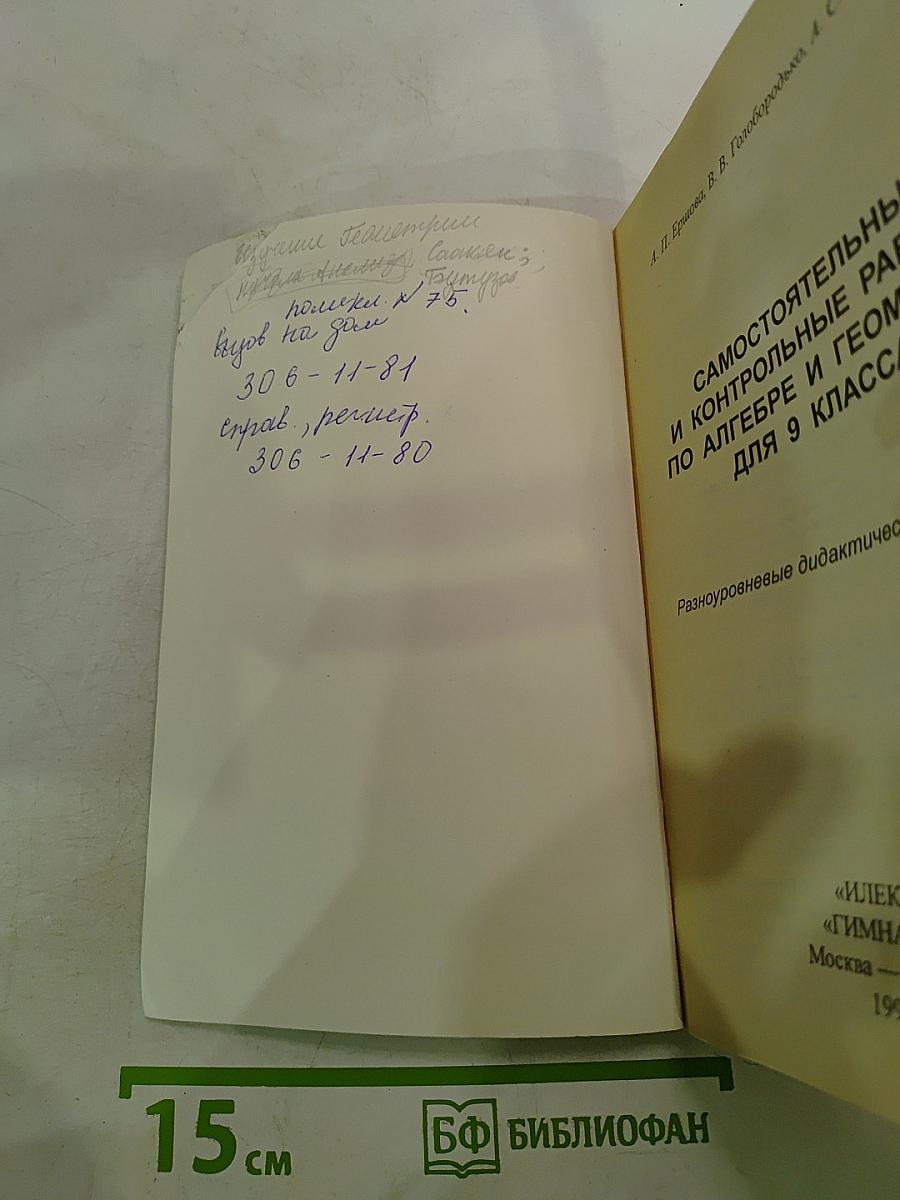 Геометрии
Бутузов
поликл. № 75.
Вызов на дом
306-11-81
справ., регистр.
306-11-80
А. П. Ершова, В. В. Голобородько, А. С
САМОСТОЯТЕЛЬНЫ
И КОНТРОЛЬНЫЕ РАБ
ПО АЛГЕБРЕ И ГЕОМ
ДЛЯ 9 КЛАССА
Разноуровневые дидактичес
«ИЛЕК
«ГИМНА
Москва —
199
15 см
БФ БИБЛИОФАН